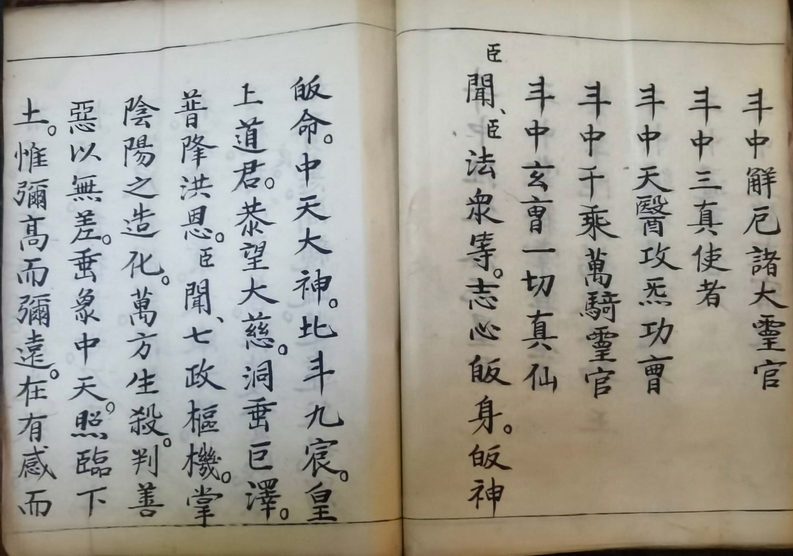 斗中解厄諸大靈官
斗中三真使者
斗中天醫攻炁功曺
斗中千乘萬騎靈官
斗中玄曺一切真仙
臣聞、臣法衆等。志心皈身。皈神
皈命。中天大神。北斗九宸。皇
上道君。恭望大慈。洞垂巨澤。
普降洪恩。臣聞、七政樞機。掌
陰陽之造化。萬方生殺。判善
惡以無差。垂象中天。照臨下
土。惟彌高而彌遠。在有感而